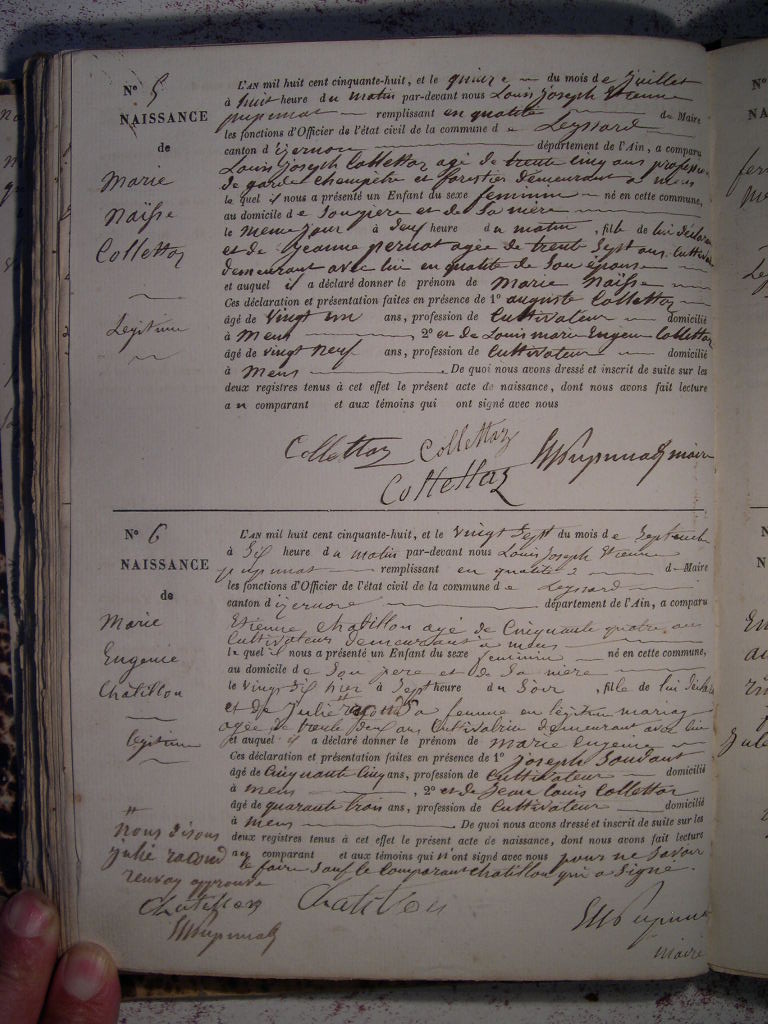 N° 5
NAISSANCE
de
Marie
Naïsse
Collettaz
Legitime
L'AN mil huit cent cinquante-huit, et le quinze du mois de juillet
à huit heure du matin par-devant nous Louis Joseph Etienne
pupunat remplissant en qualité de Maire
les fonctions d'Officier de l'état civil de la commune de Leyssard
canton d'izernore département de l'Ain, a comparu
Louis joseph Collettaz agé de trente cinq ans profession
de garde champêtre et forestier demeurant a mens
le quel il nous a présenté un Enfant du sexe feminin né en cette commune,
au domicile de Son piere et de Sa mère
le meme jour à deux heure du matin, fille de lui déclarant
et de jeanne pernat agée de trente Sept ans Cultiva
demeurant avec lui en qualité de Son épouse
et auquel il a déclaré donner le prénom de Marie Naïsse
Ces déclaration et présentation faites en présence de 1° auguste Collettaz
âgé de vingt un ans, profession de Cultivateur domicilié
à Mens 2° et de Louis marie Eugene Collettaz
âgé de vingt neuf ans, profession de Cultivateur domicilié
à Mens . De quoi nous avons dressé et inscrit de suite sur les
deux registres tenus à cet effet le présent acte de naissance, dont nous avons fait lecture
au comparant et aux témoins qui ont signé avec nous
Collettaz Collettaz Pupunat maire
Collettaz
N° 6
NAISSANCE
de
Marie
Eugenie
Chatillon
legitime
L'AN mil huit cent cinquante-huit, et le vingt Sept du mois de Septembre
à Six heure du matin par-devant nous Louis Joseph Etienne
pupunat remplissant en qualité de Maire
les fonctions d'Officier de l'état civil de la commune de Leyssard
canton d'izernore département de l'Ain, a comparu
Etienne chatillon agé de Cinquante quatre ans
Cultivateur demeurant a mens
le quel il nous a présenté un Enfant du sexe feminin né en cette commune,
au domicile de Son pere et de Sa mère
le vingt Six hier à Sept heure du Soir, fille de lui déclara
et de Julie racond Sa femme en légitime mariage
agée de trente deux ans Cultivatrice demeurant avec lui
et auquel il a déclaré donner le prénom de marie Eugenie
Ces déclaration et présentation faites en présence de 1° joseph Goudant
âgé de Cinquante Cinq ans, profession de Cultivateur domicilié
à mens , 2° et de Jean Louis Collettaz
âgé de quarante trois ans, profession de Cultivateur domicilié
à mens . De quoi nous avons dressé et inscrit de suite sur les
deux registres tenus à cet effet le présent acte de naissance, dont nous avons fait lecture
au comparant et aux témoins qui n'ont signé avec nous pour ne Savoir
le faire Sauf le Comparant chatillon qui a Signé.
nous disons
julie racond
renvoi approuvé
Chatillon Chatillon
Pupunat Pupunat
maire